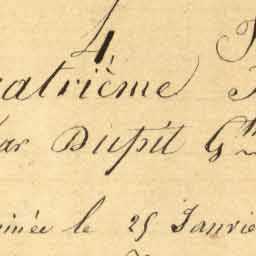 4
atrième
ar Dupit G
inée le 25 Janvie